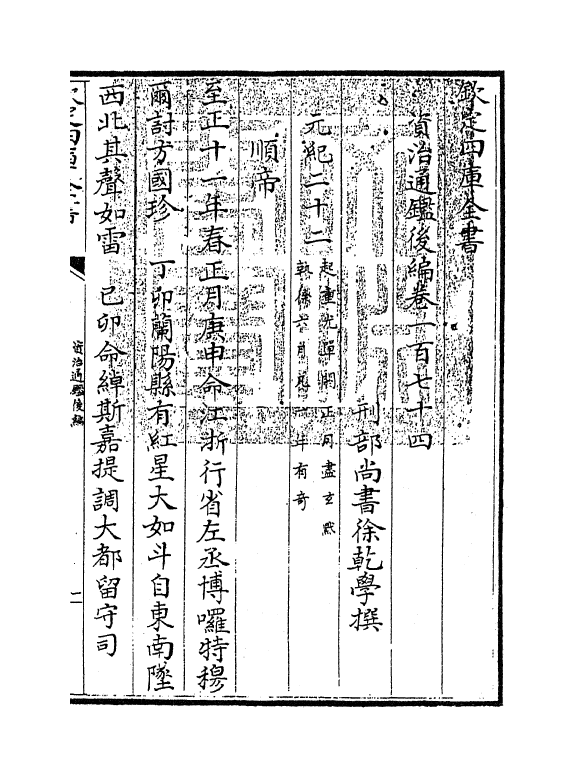 欽定四庫全書
資治通鑑後編卷一百七十四
刑部尚書徐乾學撰
元紀二十二
起重光單閼正月盡玄黓
執徐六月凡一年有奇
順帝
至正十一年春正月庚申命江浙行省左丞博囉特穆
爾討方國珍　丁卯蘭陽縣有紅星大如斗自東南墜
西北其聲如雷　己卯命綽斯嘉提調大都留守司
欽定四庫全書
資治通鑑後編